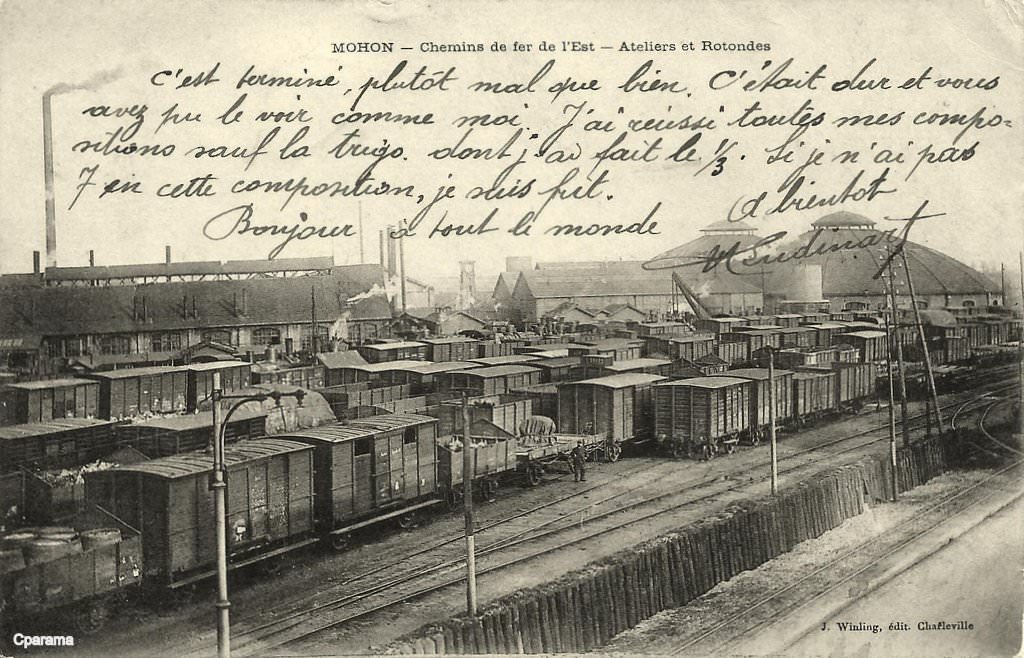 MOHON — Chemins de fer de l'Est — Ateliers et Rotondes
C'est terminé, plutôt mal que bien. C'était dur et vous
avez pu le voir comme moi. J'ai réussi toutes mes compo-
sitions sauf la trigo. dont j'ai fait le 1/3. Si je n'ai pas
7 en cette composition, je suis fut.
Bonjour à tout le monde
A bientôt
J. Winling, édit. Charleville
Cparama